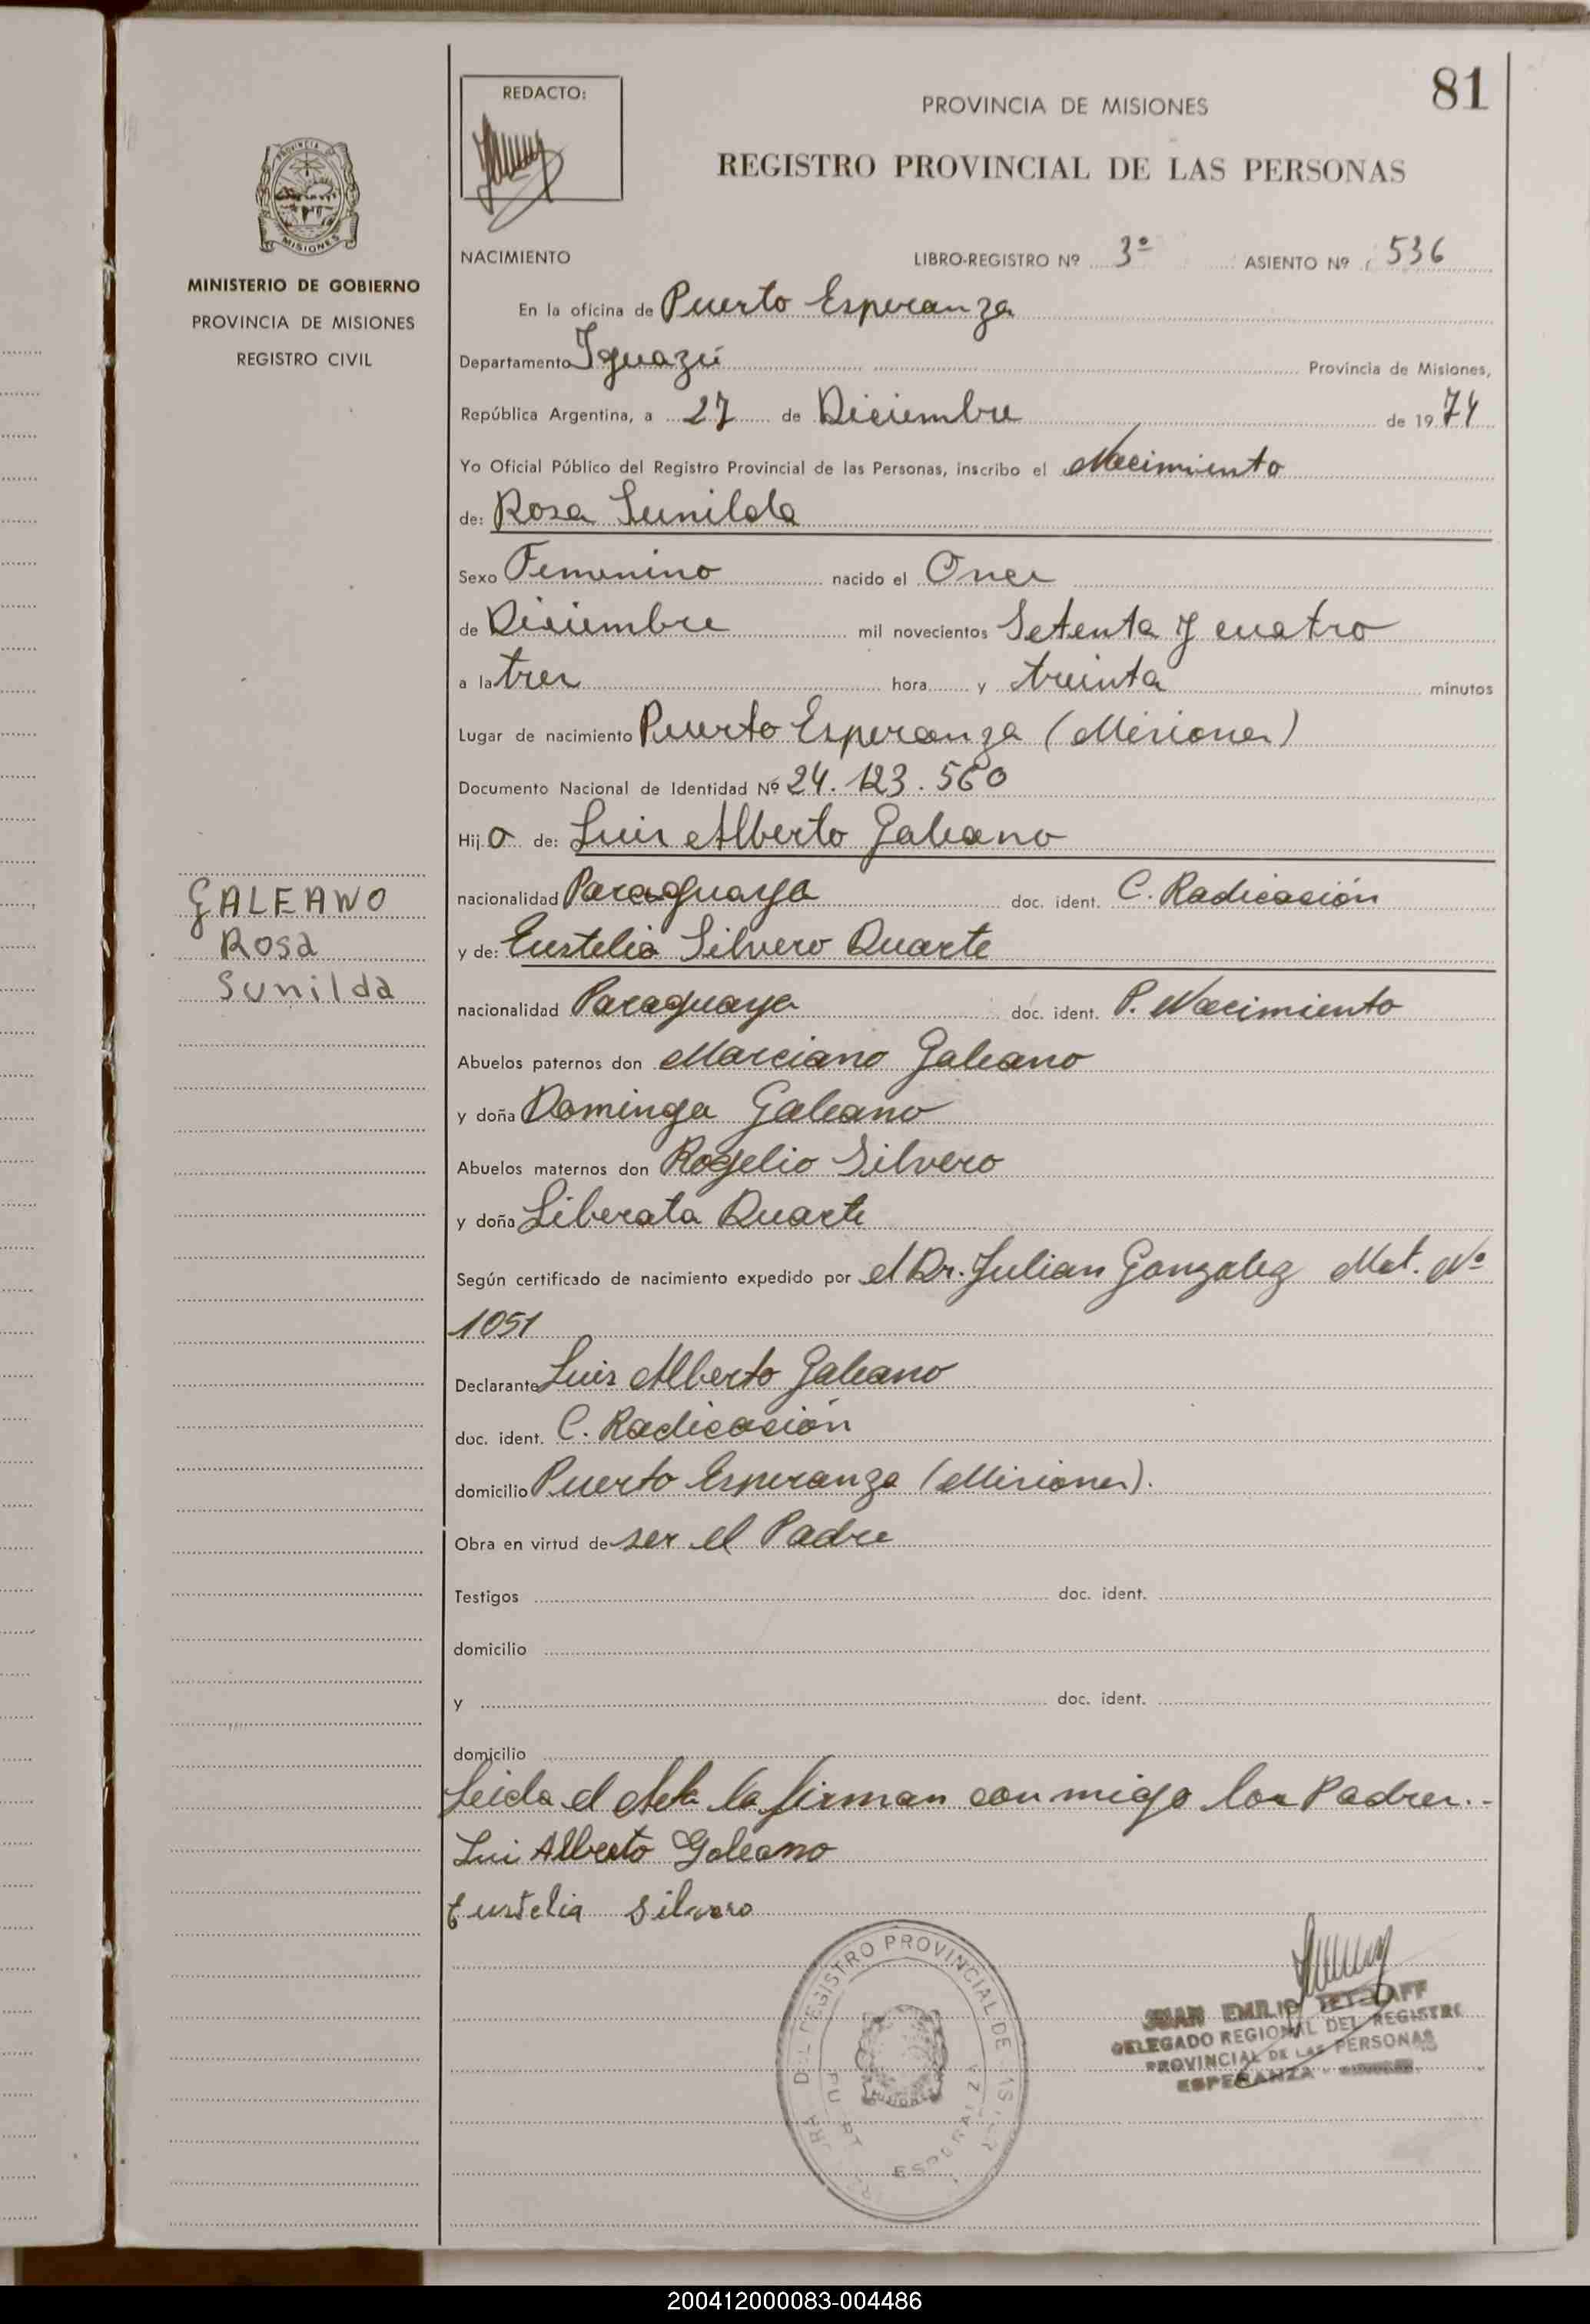 81
REDACTO:
PROVINCIA DE MISIONES
REGISTRO PROVINCIAL DE LAS PERSONAS
PROVINCIA DE
MISIONES
MINISTERIO DE GOBIERNO
PROVINCIA DE MISIONES
REGISTRO CIVIL
NACIMIENTO LIBRO-REGISTRO Nº 3º ASIENTO Nº 536
En la oficina de Puerto Esperanza
Departamento Iguazú Provincia de Misiones,
República Argentina, a 27 de Diciembre de 1974
Yo Oficial Público del Registro Provincial de las Personas, inscribo el Nacimiento
de: Rosa Sunilda
Sexo Femenino nacido el Once
de Diciembre mil novecientos Setenta y cuatro
a la tres hora y treinta minutos
Lugar de nacimiento Puerto Esperanza (Misiones)
Documento Nacional de Identidad Nº 24.123.560
Hijo de: Luis Alberto Galeano
nacionalidad Paraguaya doc. ident. C. Radicación
y de: Eustelia Silvero Duarte
nacionalidad Paraguaya doc. ident. P. Nacimiento
Abuelos paternos don Marciano Galeano
y doña Dominga Galeano
Abuelos maternos don Rogelio Silvero
y doña Liberata Duarte
Según certificado de nacimiento expedido por el Dr. Julian Gonzalez Mat. Nº
1051
Declarante Luis Alberto Galeano
doc. ident. C. Radicación
domicilio Puerto Esperanza (Misiones).
Obra en virtud de ser el Padre
Testigos doc. ident.
domicilio
y doc. ident.
domicilio
Leida el Acta la firman conmigo los Padres.-
Luis Alberto Galeano
Eustelia Silvero
GALEANO
Rosa
Sunilda
DEL REGISTRO PROVINCIAL DE LAS
JUAN EMILIO
DELEGADO REGIONAL DEL REGISTRO
PROVINCIAL DE LAS PERSONAS
ESPERANZA
200412000083-004486